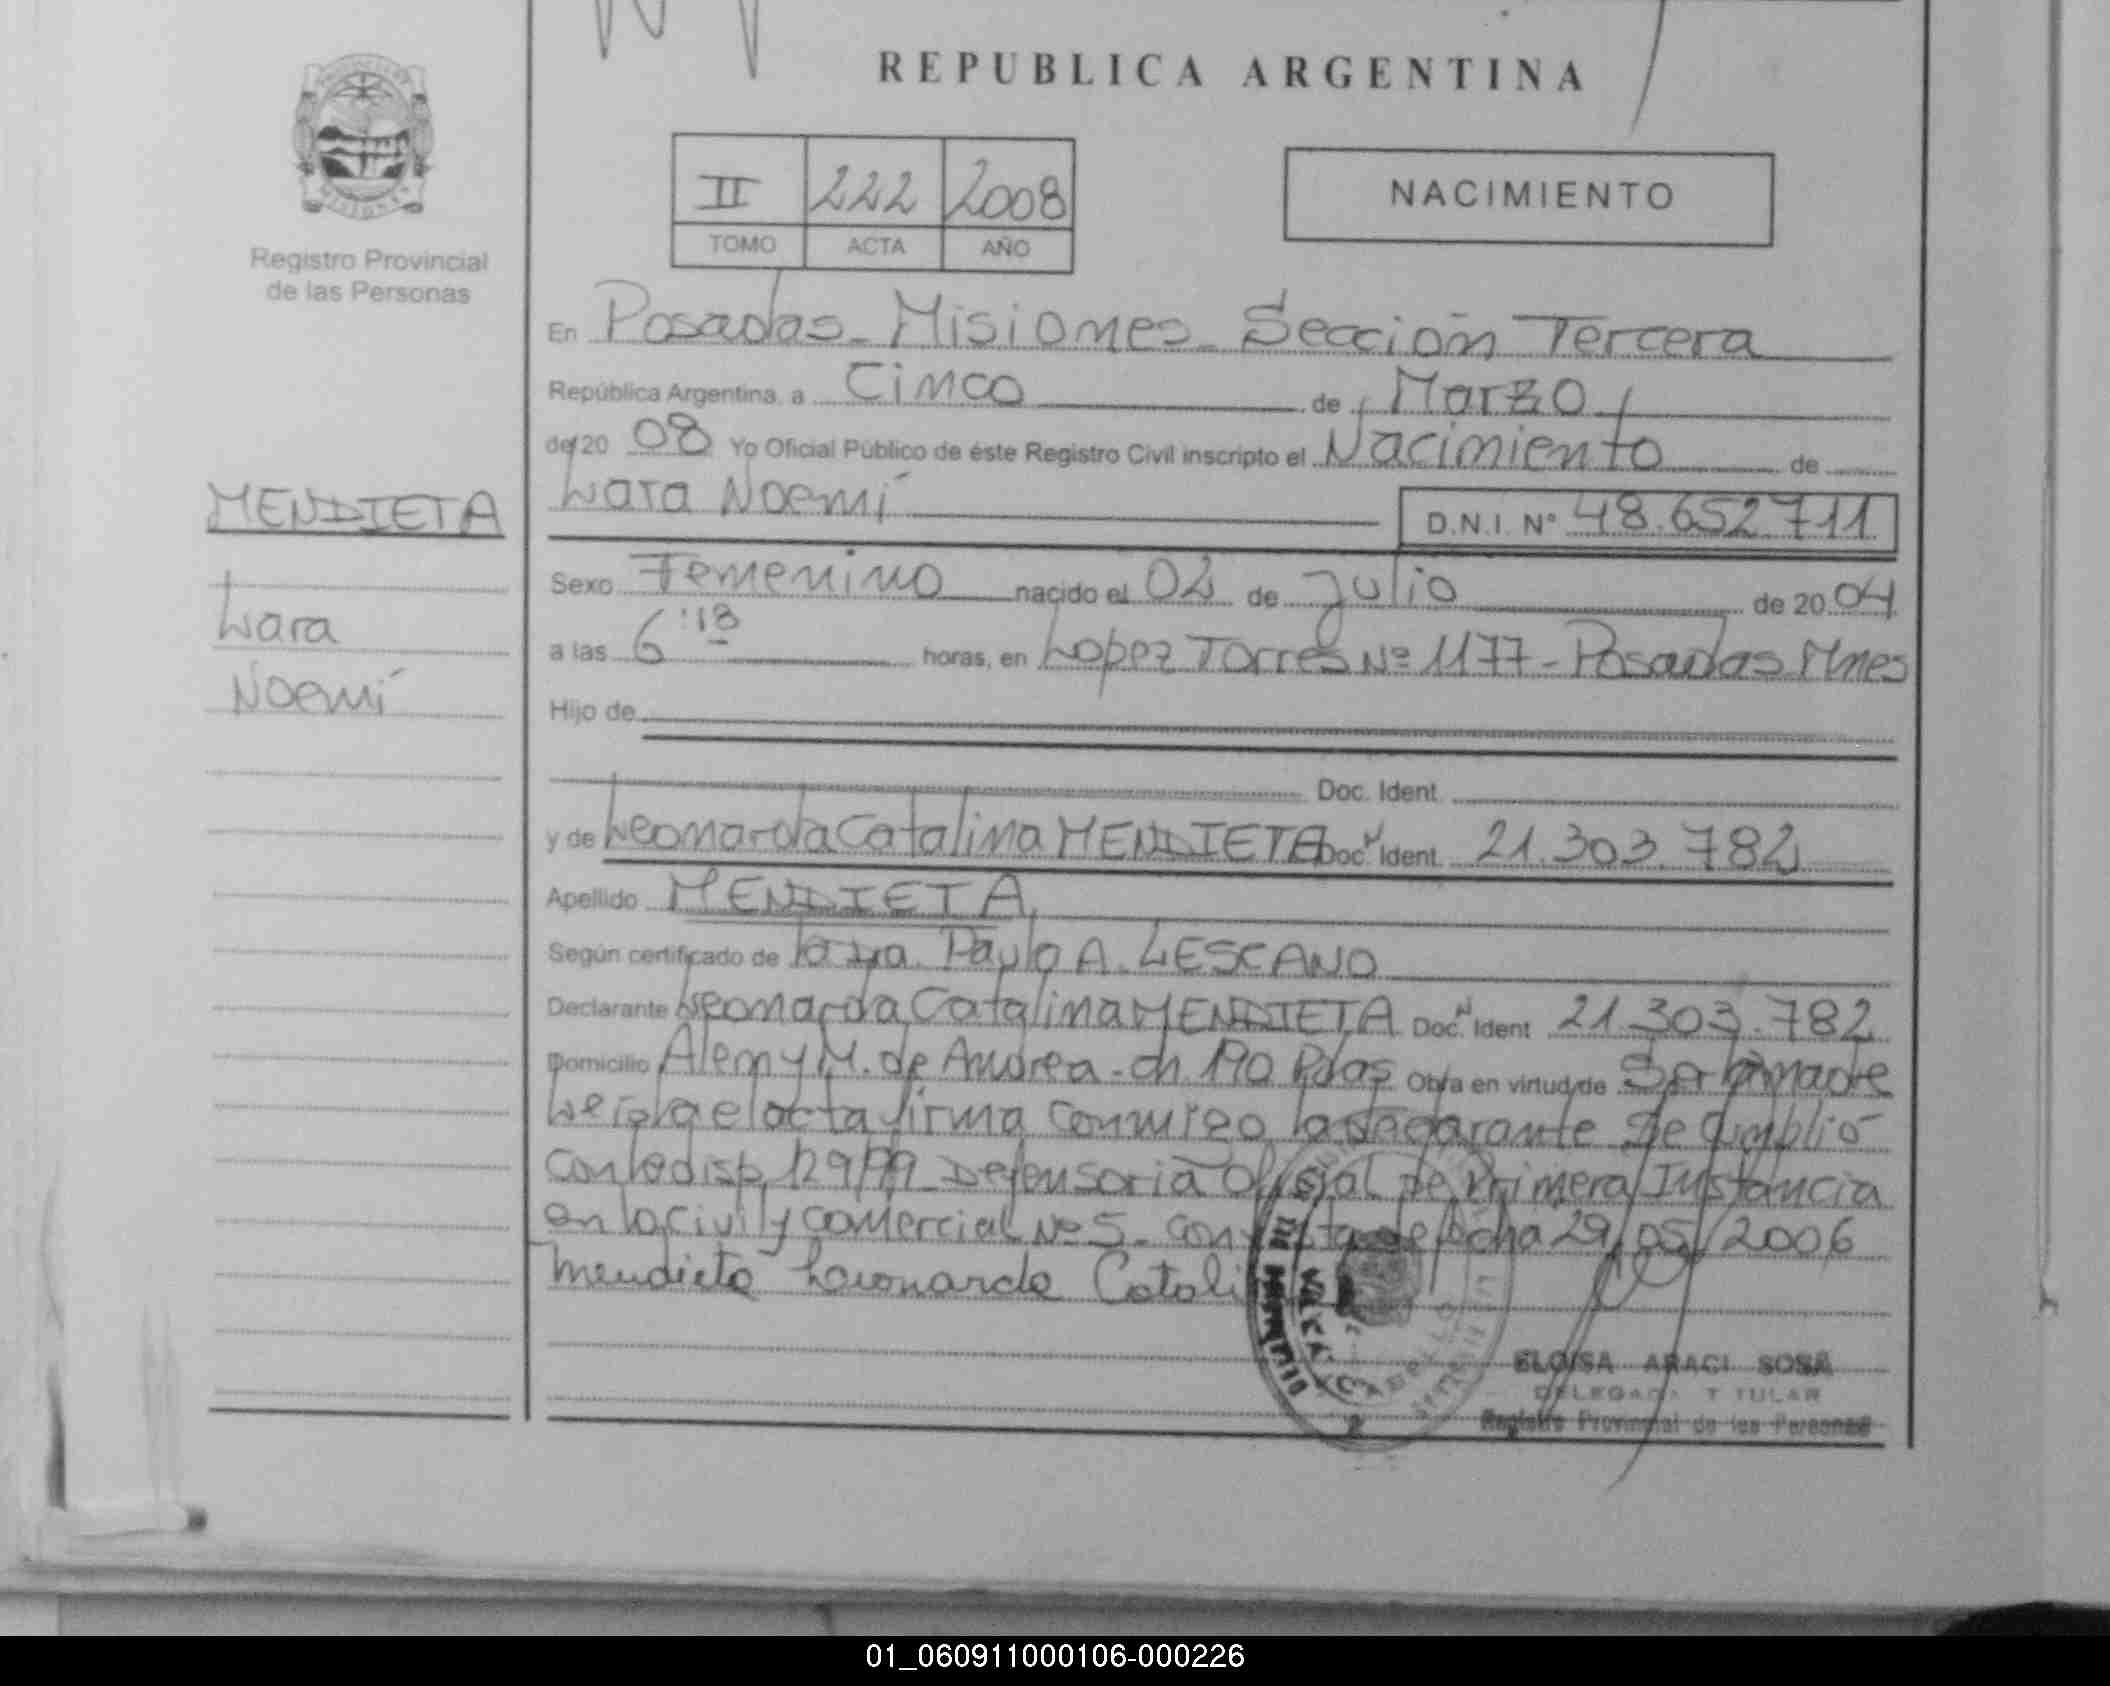 REPUBLICA ARGENTINA
PROVINCIA DE
MISIONES
Registro Provincial
de las Personas
II 222 2008
TOMO ACTA AÑO
NACIMIENTO
En Posadas - Misiones - Sección Tercera
República Argentina, a Cinco de Marzo
del 20 08 Yo Oficial Público de éste Registro Civil inscripto el Nacimiento de
Lara Noemí D.N.I. Nº 48.652.711
MENDIETA
Lara
Noemí
Sexo Femenino nacido el 02 de Julio de 20 04
a las 6:18 horas, en Lopez Torres Nº 1177 - Posadas Mnes
Hijo de
Doc. Ident.
y de Leonarda Catalina MENDIETA Doc. Ident. 21.303.782
Apellido MENDIETA
Según certificado de la Dra. Paula A. LESCANO
Declarante Leonarda Catalina MENDIETA Doc. Ident 21.303.782
Domicilio Alem y M. de Andrea - ch 190 Pdas Obra en virtud de Ser la madre
Leída el acta firma conmigo la declarante Se cumplió
con la disp. 129/99 - Defensoria Oficial de Primera Instancia
en lo Civil y Comercial Nº 5 - con de fecha 29/05/2006
Mendieta Leonarda Catali
ELOISA ARACI SOSA
DELEGADA TITULAR
Registro Provincial de las Personas
01_060911000106-000226